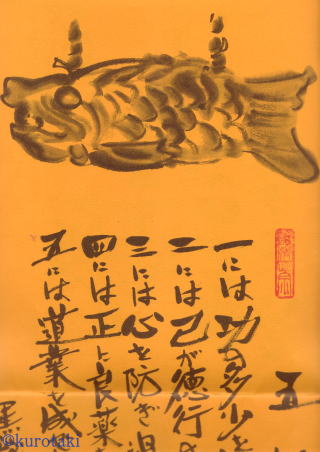 五
一には功の多少を
二には己が徳行の
三には心を防ぎ過
四には正に良薬
五には道業を成
©kurotaki